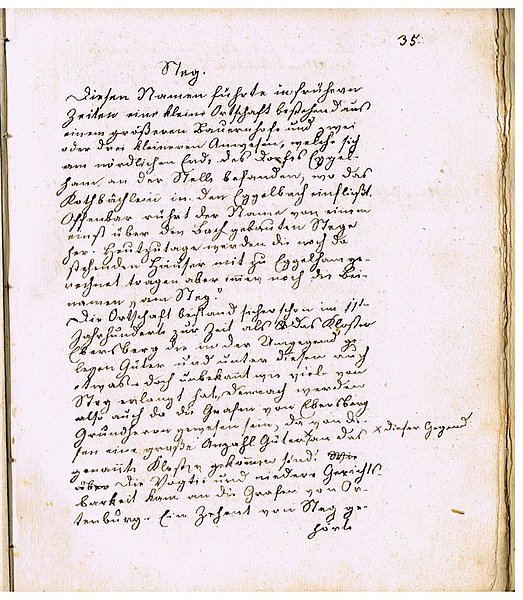 35.
Steg.
Diesen Namen führte in frühern
Zeiten eine kleine Ortschaft bestehend aus
einem größeren Bauernhofe und zwei
oder drei kleineren Anwesen, welche sich
am nördlichen Ende des Dorfes Eggel-
ham an der Stelle befanden, wo das
Kothbächlein in den Eggelbach einfließt.
Offenbar rührt der Name von einem
einst über den Bach gebauten Stege
her. Heutzutage werden die noch da
stehenden Häuser mit zu Eggelham ge-
rechnet tragen aber immer noch die Bei-
namen "am Steg."
Die Ortschaft bestand sicher schon im 11t.
Jahrhunderte zur Zeit als das Kloster
Ebersberg die in der Umgegend ge-
legen Güter und unter diesen auch
etwas doch unbekannt wie viel von
Steg erlangt hat. Demnach werden
also auch da die Grafen von Ebersberg
Grundherrn gewesen sein, da von die-
sen eine große Anzahl Güter an das x dieser Gegend
genannte Kloster gekommen sind.
Die Vogtei und niedere Gerichts-
barkeit kam an die Grafen von Or-
tenburg. Ein Zehent von Steg ge-
hörte